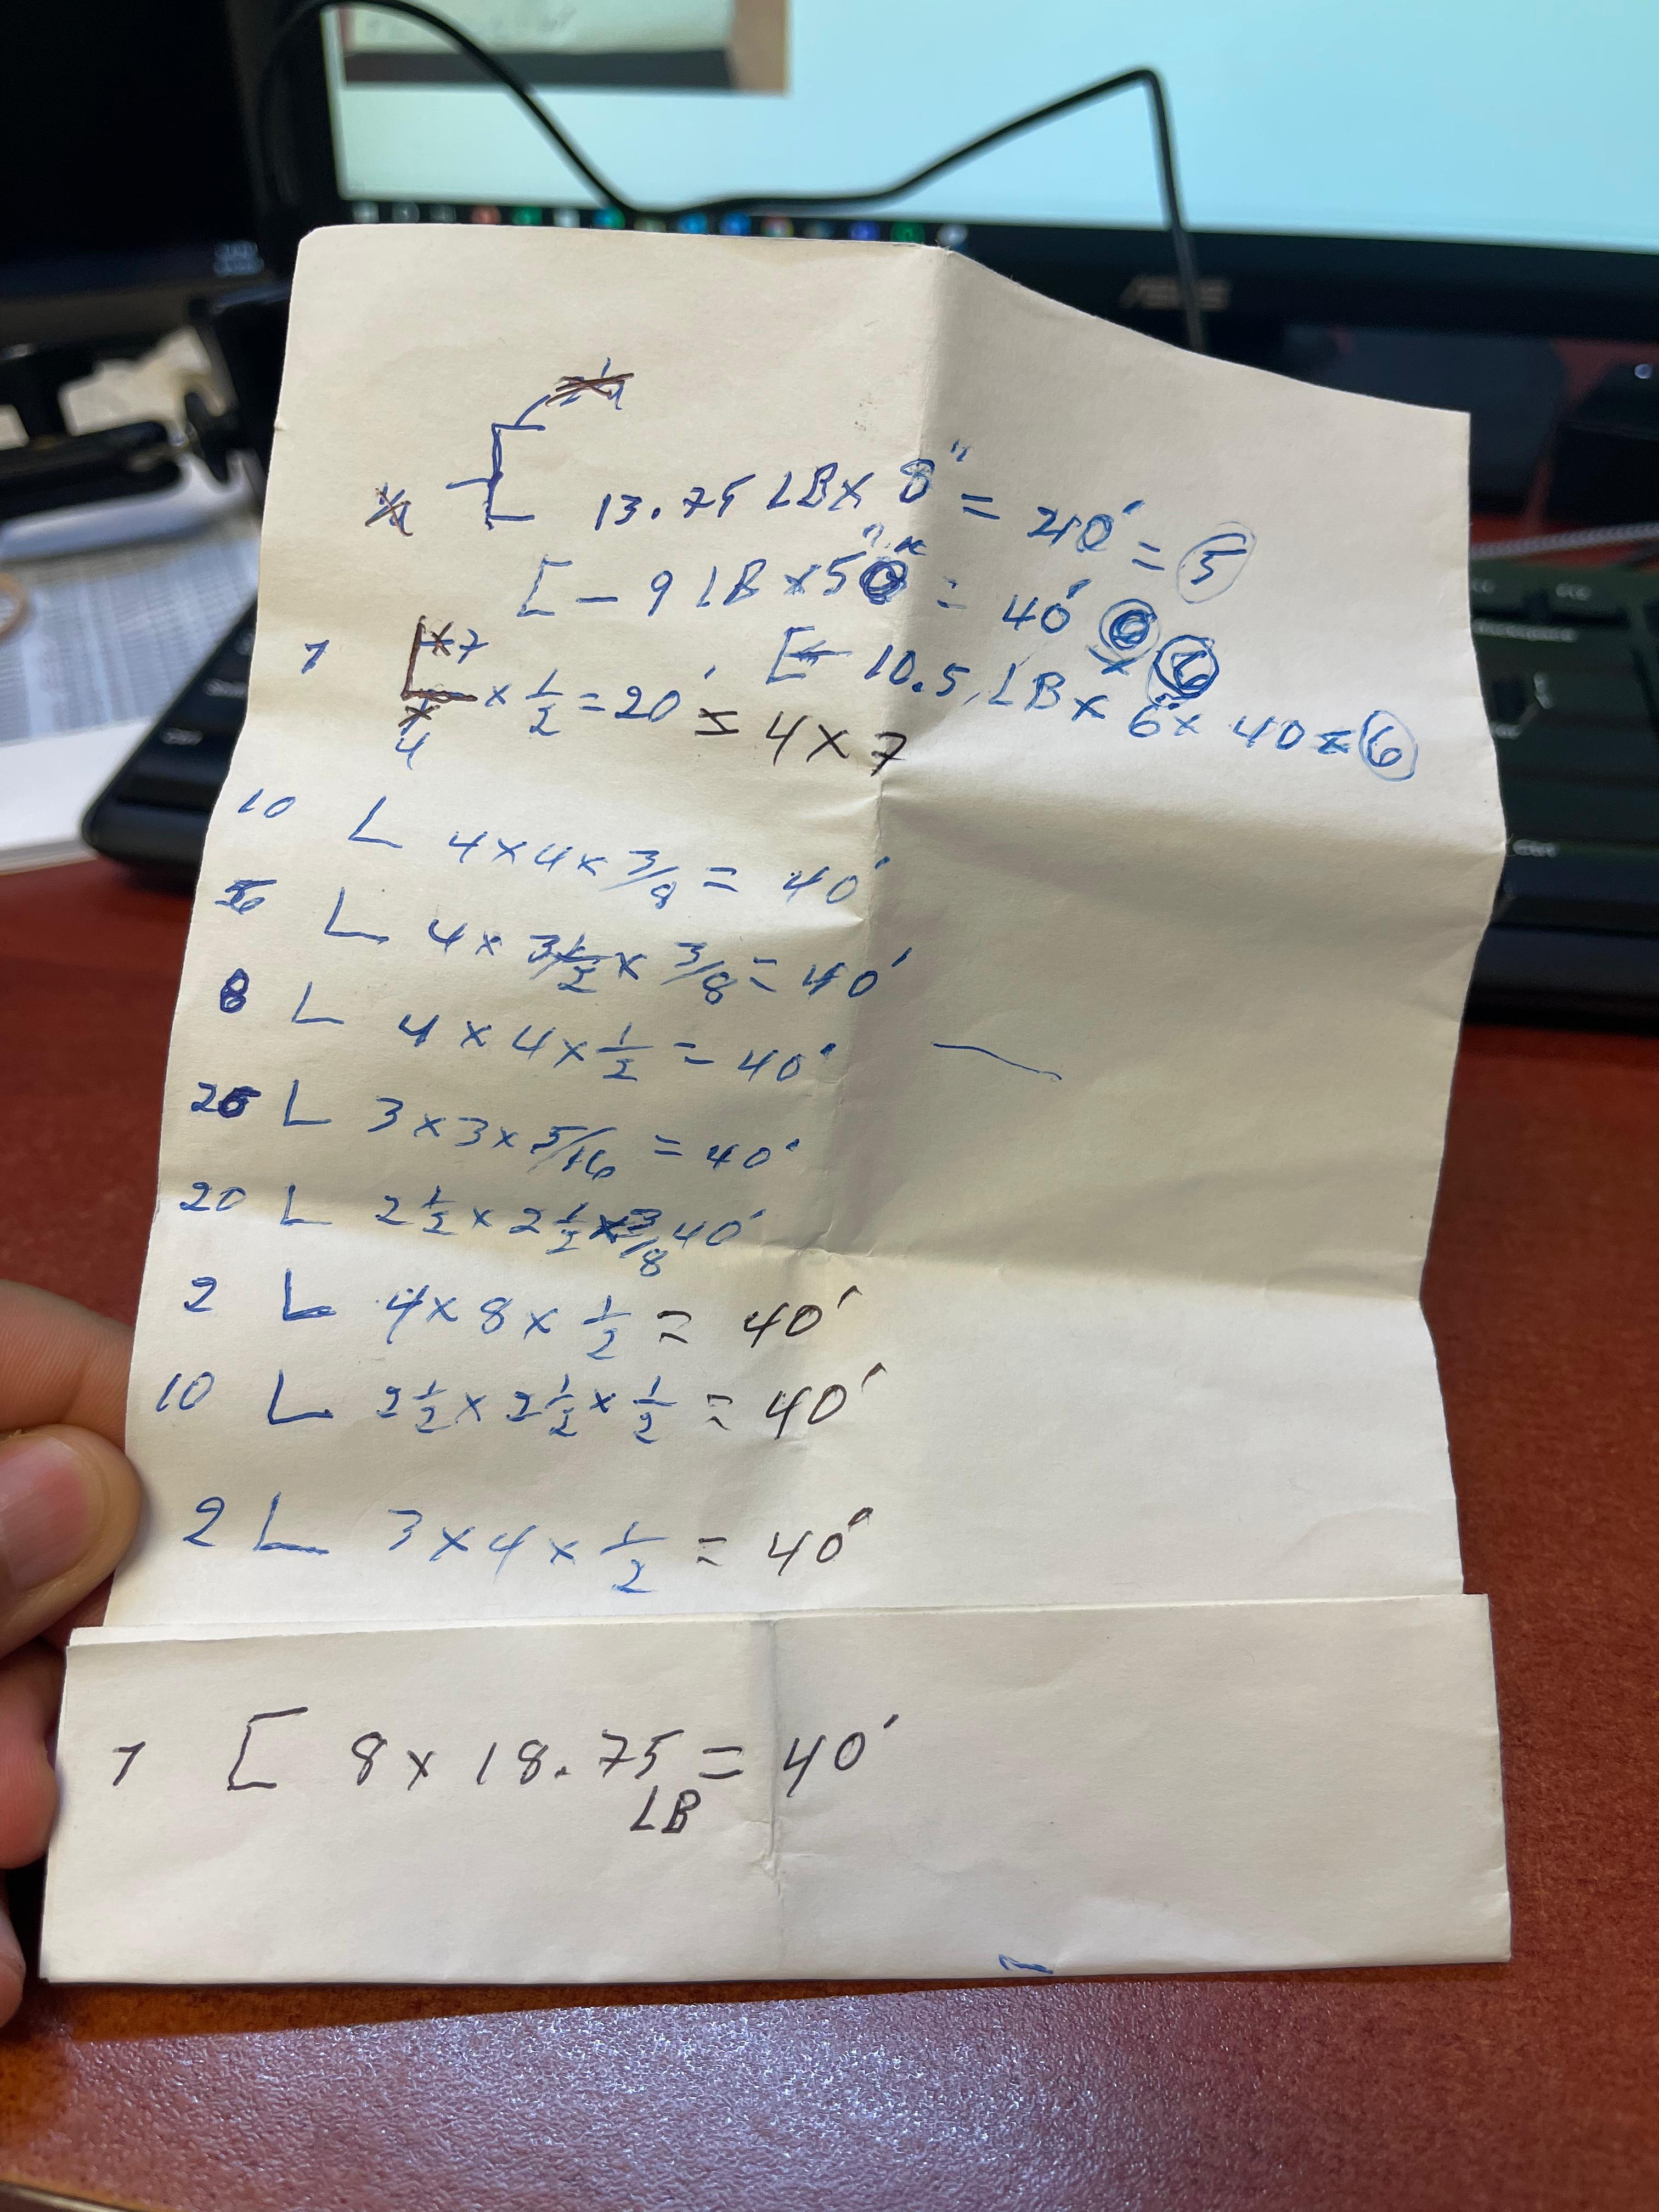 13.75 LB x 8" = 40' = 5
[ - 9 LB x 5" = 40'
[ 10.5 LB x 6" x 40 = 6
1 x 7
4 x 1/2 = 20' = 4 x 7
10 L 4 x 4 x 3/8 = 40'
L 4 x 3 1/2 x 3/8 = 40'
8 L 4 x 4 x 1/2 = 40'
20 L 3 x 3 x 5/16 = 40'
20 L 2 1/2 x 2 1/2 x 3/8 40'
2 L 4 x 8 x 1/2 = 40'
10 L 2 1/2 x 2 1/2 x 1/2 = 40'
2 L 3 x 4 x 1/2 = 40'
1 [ 8 x 18.75 = 40'
LB
ASUS